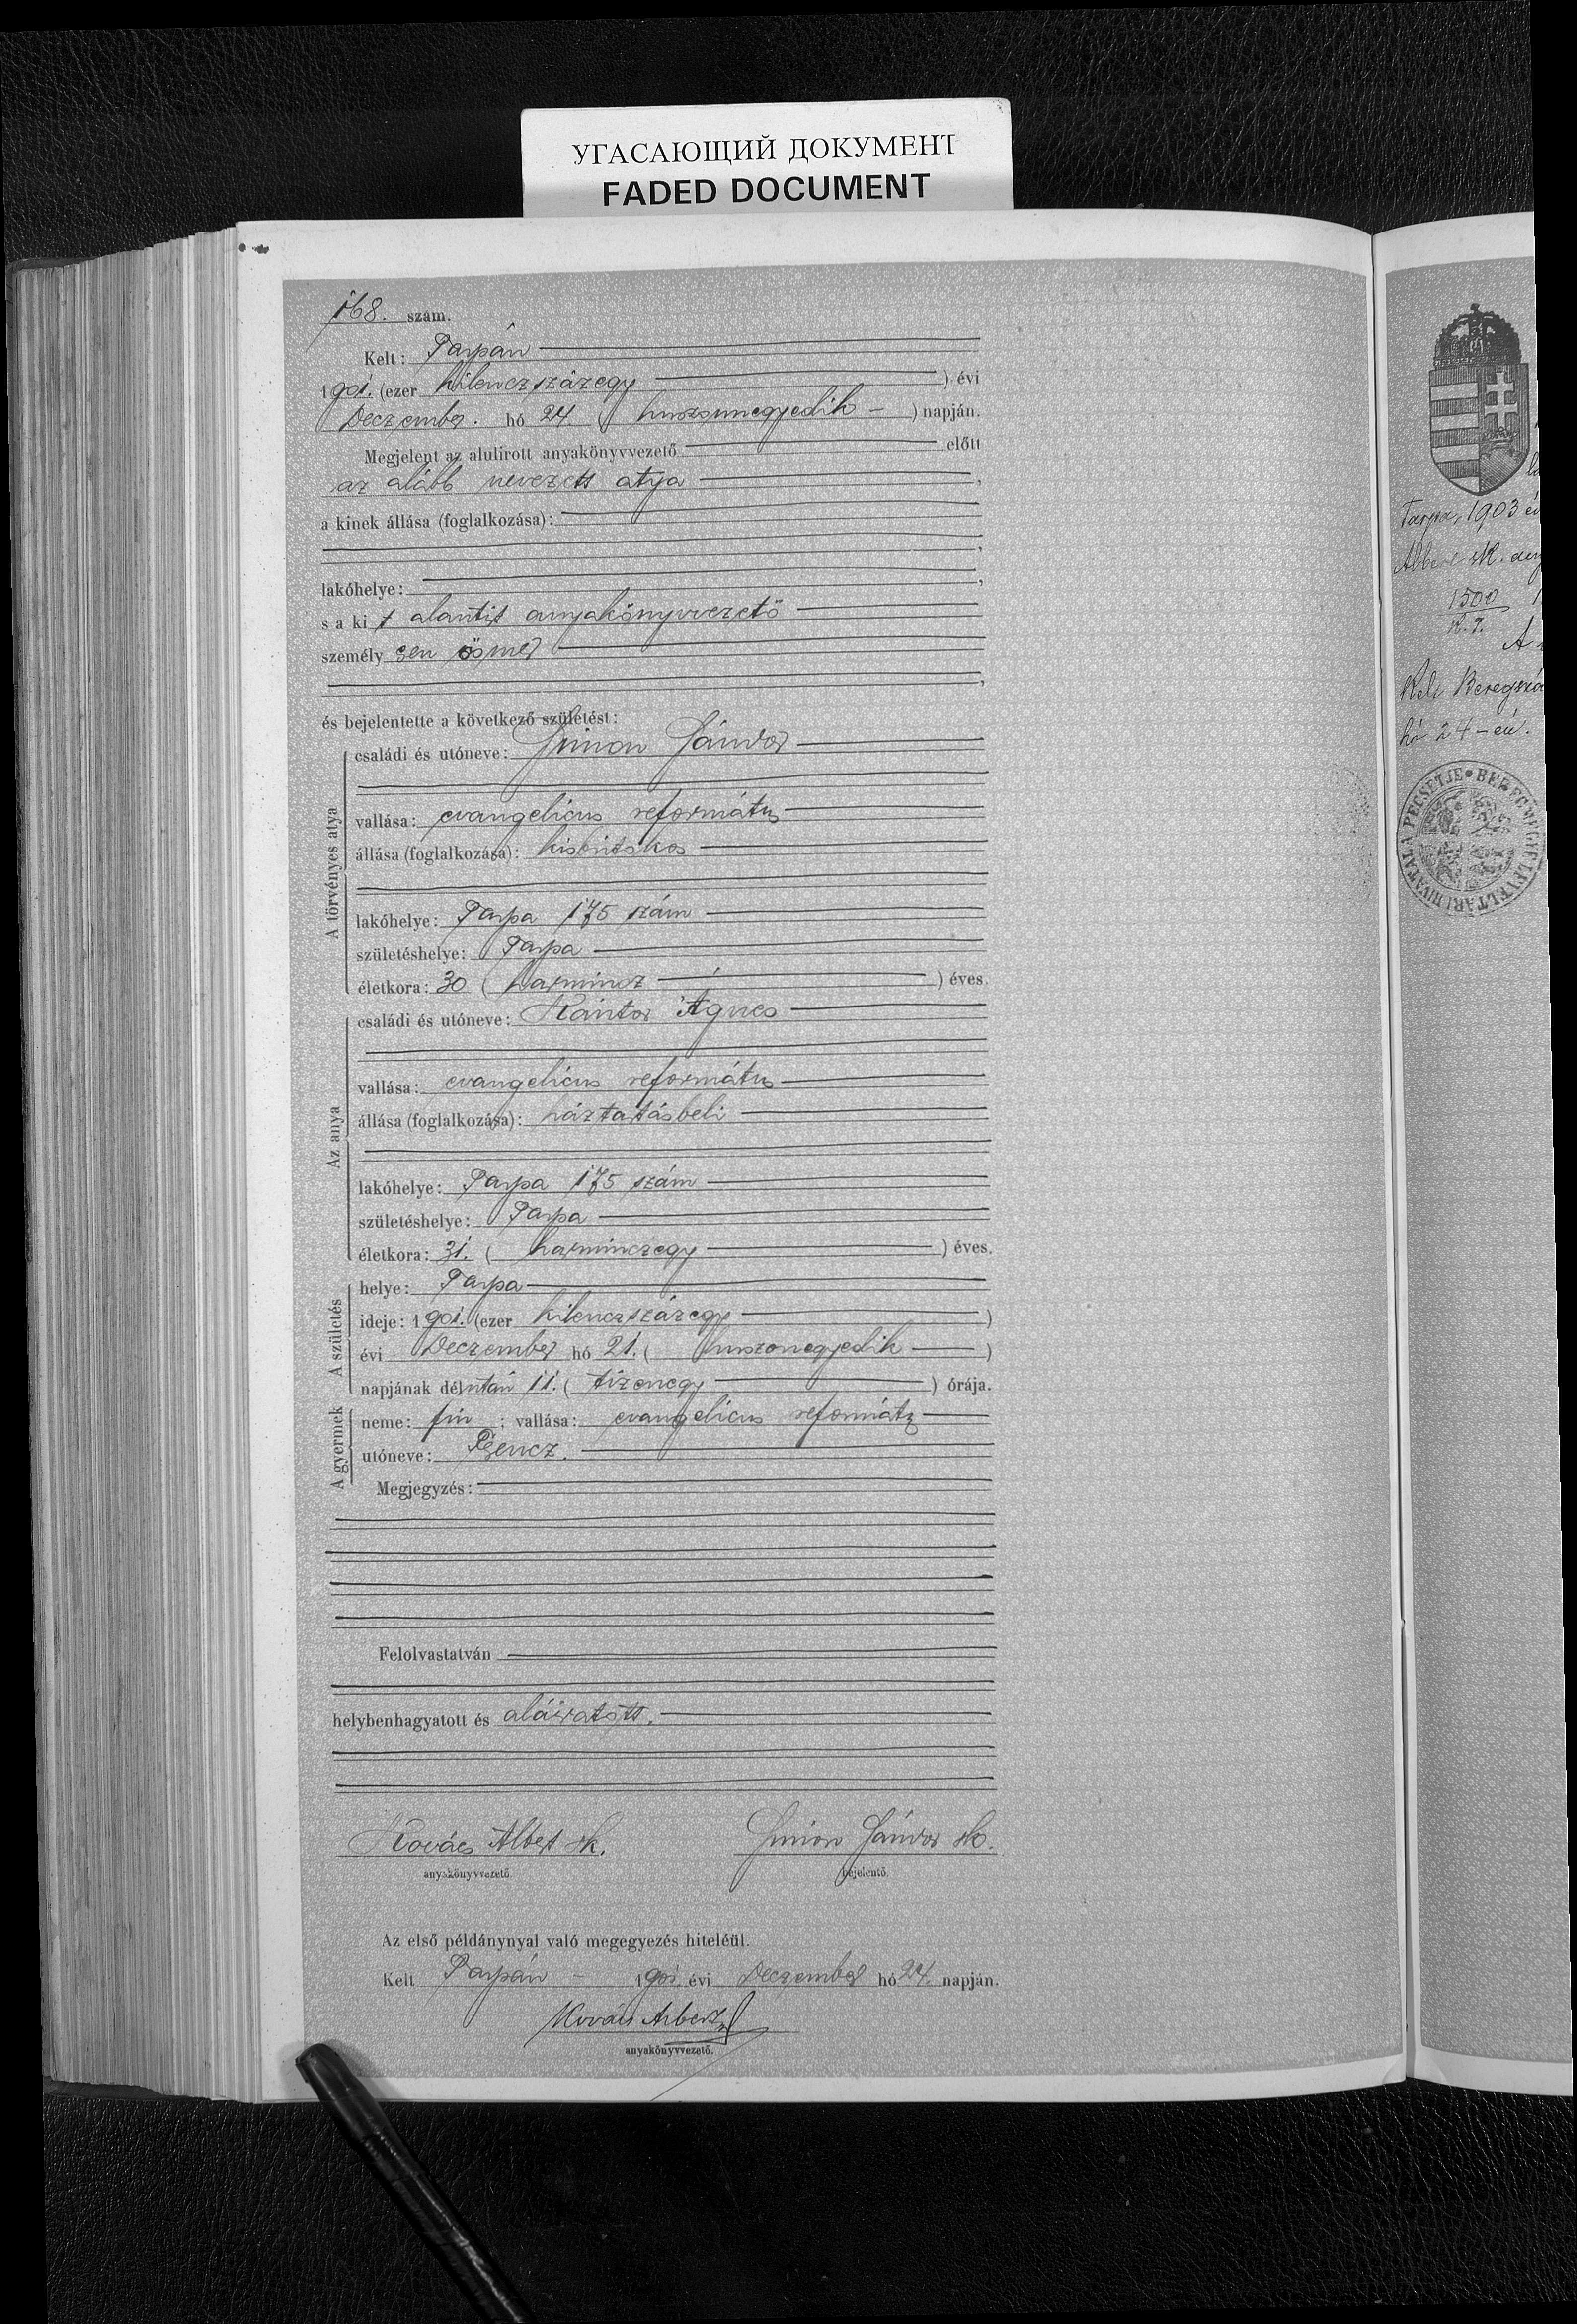 УГАСАЮЩИЙ ДОКУМЕНТ
FADED DOCUMENT
168. szám.
Kelt: Tarpán
1901. (ezer kilenczszázegy ) évi
Deczember. hó 24. ( huszonnegyedik – ) napján.
Megjelent az alulirott anyakönyvvezető előtt
az alább nevezett atya ,
a kinek állása (foglalkozása):
,
lakóhelye: ,
s a ki t alantirt anyakönyvvezető
személy esen ösmer
,
és bejelentette a következő születést:
A törvényes atya
családi és utóneve: Simon Sándor
vallása: evangelicus református
állása (foglalkozása): kisbirtokos
lakóhelye: Tarpa 175 szám
születéshelye: Tarpa
életkora: 30 ( harmincz ) éves.
Az anya
családi és utóneve: Kántor Ágnes
vallása: evangelicus református
állása (foglalkozása): háztartásbeli
lakóhelye: Tarpa 175 szám
születéshelye: Tarpa
életkora: 31. ( harminczegy ) éves.
A születés
helye: Tarpa
ideje: 1901. (ezer kilenczszázegy )
évi Deczember hó 21. ( huszonegyedik )
napjának délután 11. ( tizenegy ) órája.
A gyermek
neme: fiu ; vallása: evangelicus református
utóneve: Bencz.
Megjegyzés:
Felolvastatván
helybenhagyatott és aláiratott.
Kovács Albert sk. Simon Sándor sk.
anyakönyvvezető. bejelentő.
Az első példánynyal való megegyezés hiteléül.
Kelt Tarpán – 1901. évi Deczember hó 24. napján.
Kovács Albert
anyakönyvvezető.
Tarpa, 1903 év
Albert sk. any
1500
K. I.
A
Kelt Beregszá
hó 24-én.
BEREGMEGYE LEVÉLTÁRI HIVATALA PECSÉTJE